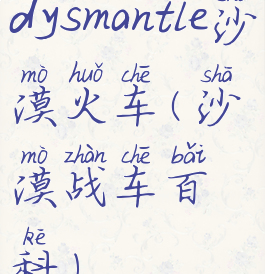 dysmantle沙
mò huǒ chē shā
漠火车(沙
mò zhàn chē bǎi
漠战车百
kē
科)